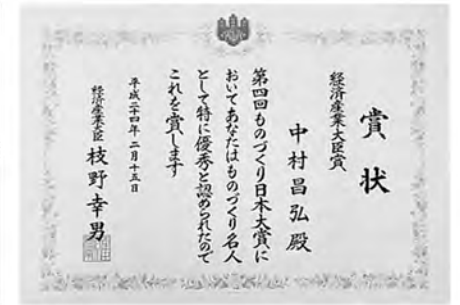 賞状
経済産業大臣賞
中村昌弘殿
第四回ものづくり日本大賞に
おいてあなたはものづくり名人
として特に優秀と認められたので
これを賞します
平成二十四年二月十五日
経済産業大臣 枝野幸男